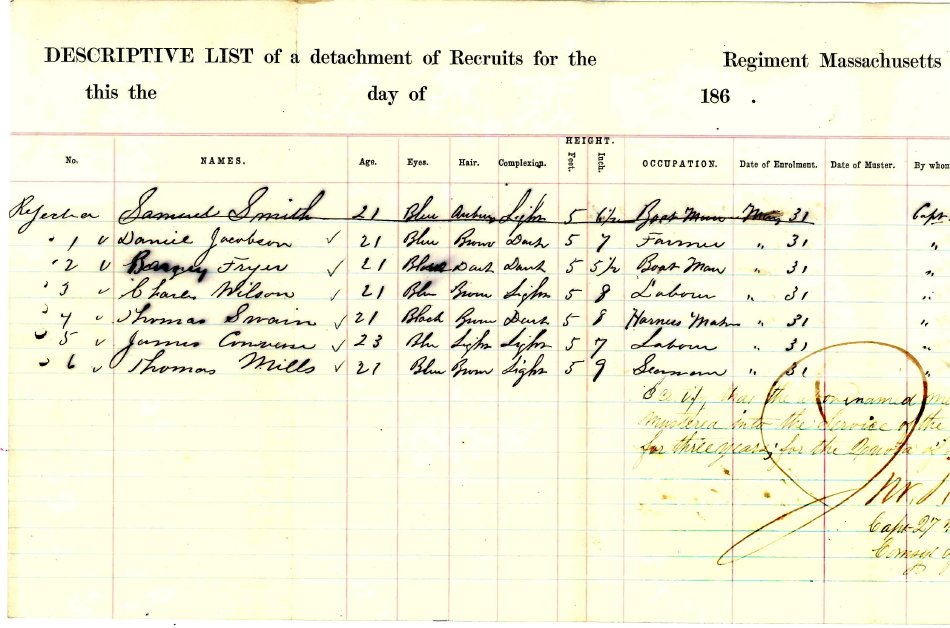 DESCRIPTIVE LIST of a detachment of Recruits for the Regiment Massachusetts
this the day of 186 .
HEIGHT.
No. NAMES. Age. Eyes. Hair. Complexion. Feet. Inch. OCCUPATION. Date of Enrolment. Date of Muster. By whom
Rejected Samuel Smith 21 Blue Auburn Light 5 6½ Boat Man May 31 Capt
" 1 v Daniel Jacobson ✓ 21 Blue Brown Dark 5 7 Farmer " 31 "
" 2 v Fryer ✓ 21 Dark Dark 5 5½ Boat Man " 31 "
" 3 v Charles Wilson ✓ 21 Blu Brown Light 5 8 Labour " 31 "
" 4 v Thomas Swain ✓ 21 Black Brow Dark 5 8 Harness Maker " 31 "
" 5 v James Converse ✓ 23 Blu Light Light 5 7 Labour " 31 "
" 6 v Thomas Mills ✓ 21 Blue Brown Light 5 9 Seaman " 31 "
that the above named
mustered into the service of the
for three years; for the Quota
Capt 27